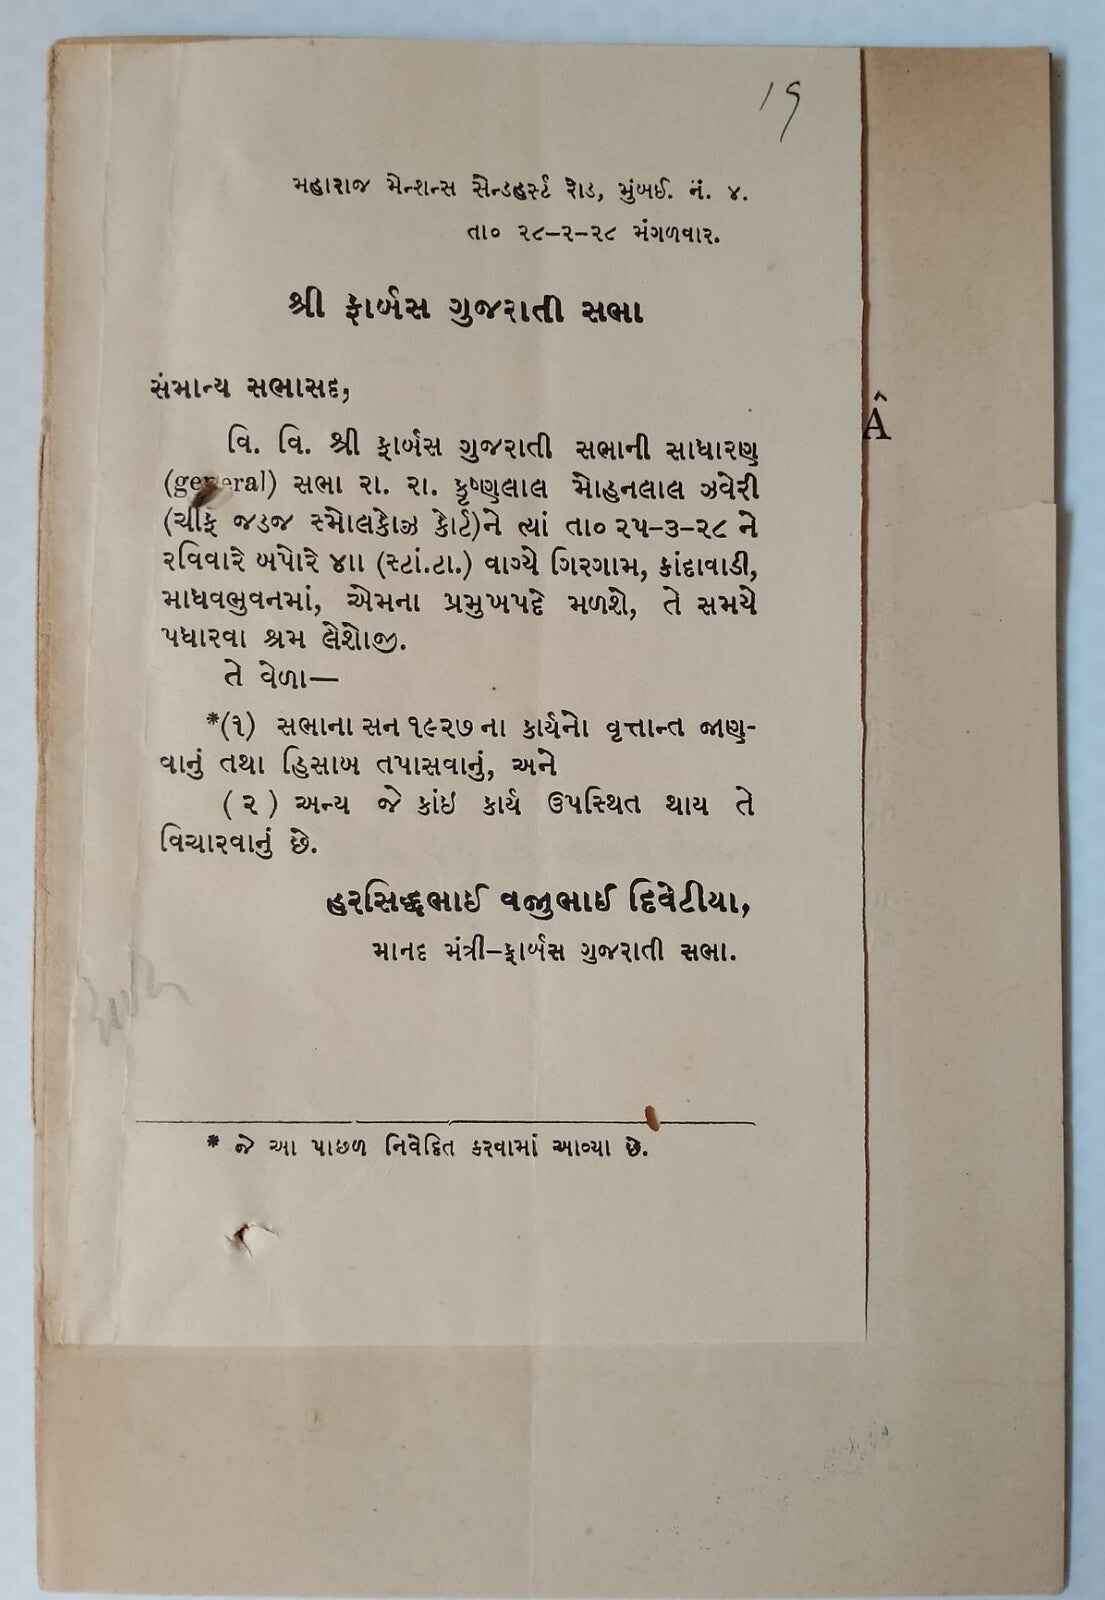 19
મહારાજ મેન્શન્સ સેન્ડહર્સ્ટ રોડ, મુંબઈ. નં. ૪.
તા૦ ૨૮–૨–૨૮ મંગળવાર.
શ્રી ફાર્બસ ગુજરાતી સભા
સંમાન્ય સભાસદ,
વિ. વિ. શ્રી ફાર્બસ ગુજરાતી સભાની સાધારણ
(general) સભા રા. રા. કૃષ્ણલાલ મોહનલાલ ઝવેરી
(ચીફ જડજ સ્મોલકોઝ કોર્ટ)ને ત્યાં તા૦ ૨૫–૩–૨૮ ને
રવિવારે બપોરે ૪ાા (સ્ટાં.ટા.) વાગ્યે ગિરગામ, કાંદાવાડી,
માધવભુવનમાં, એમના પ્રમુખપદે મળશે, તે સમયે
પધારવા શ્રમ લેશોજી.
તે વેળા—
*(૧) સભાના સન ૧૯૨૭ ના કાર્યનો વૃત્તાન્ત જાણ-
વાનું તથા હિસાબ તપાસવાનું, અને
(૨) અન્ય જે કાંઇ કાર્ય ઉપસ્થિત થાય તે
વિચારવાનું છે.
હરસિદ્ધભાઈ વજુભાઈ દિવેટીયા,
માનદ મંત્રી–ફાર્બસ ગુજરાતી સભા.
* જે આ પાછળ નિવેદિત કરવામાં આવ્યા છે.
Â